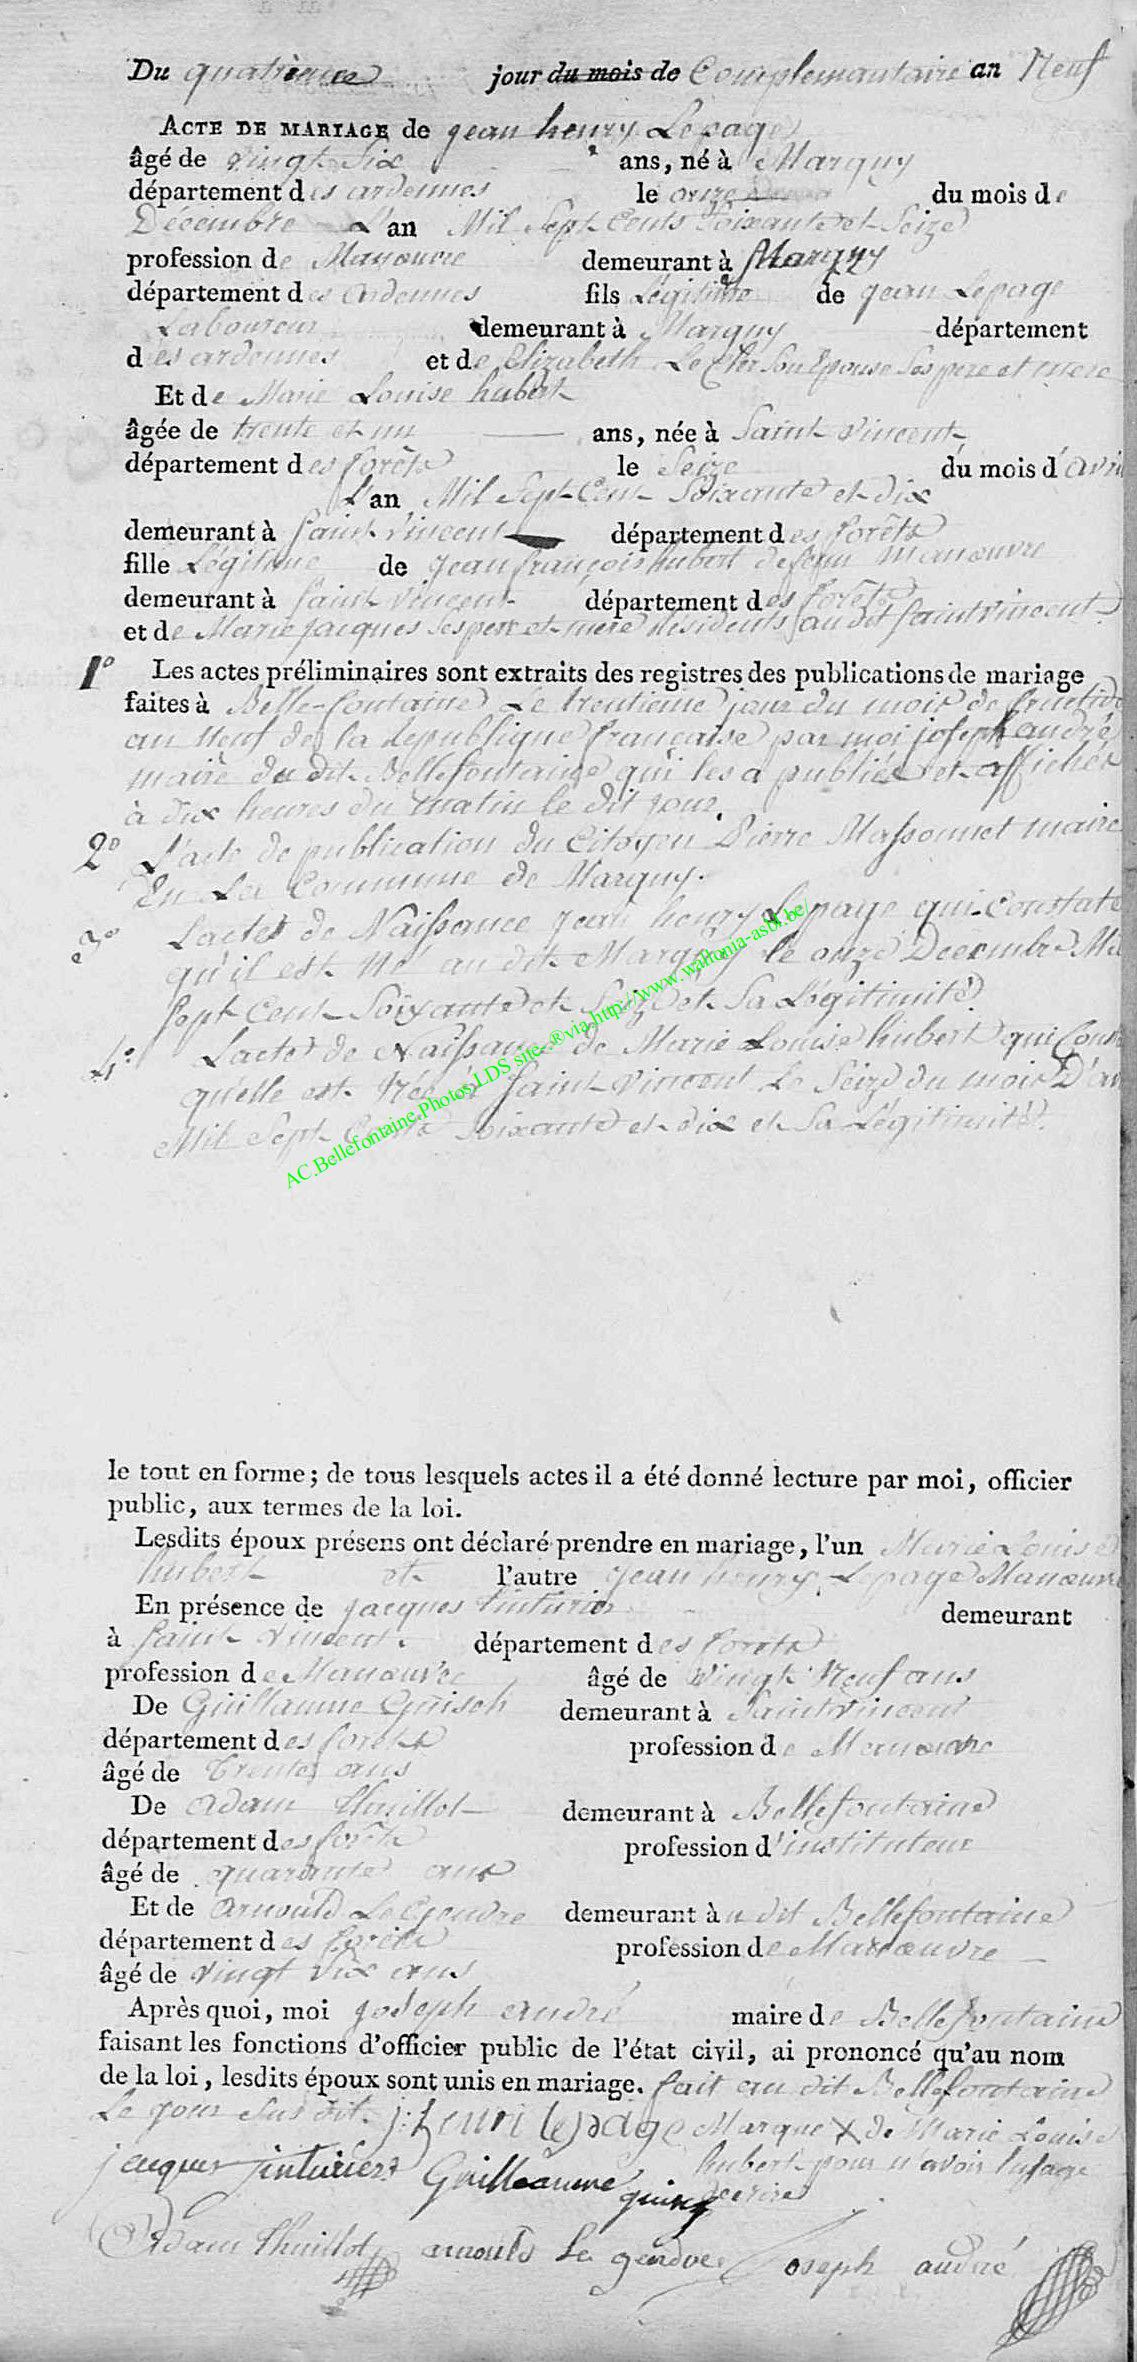 Du quatrième jour du mois de Complemantaire an Neuf
ACTE DE MARIAGE de jean henry Lepage
âgé de vingt Six ans, né à Marguy
département des ardennes le onze du mois de
Décembre L'an Mil Sept Cents Soixante et Seize
profession de Manouvre demeurant à Marguy
département des ardennes fils Légitime de jean Lepage
Laboureur demeurant à Marguy département
des ardennes et de Elizabeth Le Cler Son Epouse Ses pere et mere
Et de Marie Louise hubert
âgée de trente et un ans, née à Saint Vincent
département des forêts le Seize du mois d'avril
L'an Mil Sept Cent Soixante et dix
demeurant à Saint Vincent département des forêts
fille Légitime de jean françois hubert defunt manoeuvre
demeurant à Saint Vincent département des forêts
et de Marie jacques Ses pere et mere Residents au dit Saint Vincent
1° Les actes préliminaires sont extraits des registres des publications de mariage
faites à Belle-fontaine Le trentieme jour du mois de fructido
an Neuf de la Republique francaise par moi joseph andré
maire du dit Bellefontaine qui les a publiée et affichée
à dix heures du matin le dit jour.
2° L'acte de publication du Citoyen Pierre Massonnet maire
En La Commune de Marguy.
3° L'acte de Naissance jean henry Lepage qui Constate
qu'il est Né au dit Marguy le onze Decembre Mil
Sept Cent Soixante et Seize et Sa Légitimité
4° L'acte de Naissance de Marie Louise hubert qui Cons
quelle est Née à Saint Vincent Le Seize du mois D'av
Mil Sept Cent Soixante et dix et Sa Légitimité.
AC.Bellefontaine.Photos.LDS site..®via.http://www.wallonia-asbl.be/
le tout en forme; de tous lesquels actes il a été donné lecture par moi, officier
public, aux termes de la loi.
Lesdits époux présens ont déclaré prendre en mariage, l'un Marie Louise
hubert et l'autre jean henry Lepage Manoeuvre
En présence de jacques tinturier demeurant
à Saint Vincent. département des forêts
profession de Manoeuvre âgé de vingt Neuf ans
De Guillaume Guisch demeurant à Saint Vincent
département des forêts profession de Manoeuvre
âgé de Trente ans
De Adam thuillot demeurant à Bellefontaine
département des forêts profession d'instituteur
âgé de quarante ans
Et de arnould Le Gendre demeurant au dit Bellefontaine
département des forêts profession de Manoeuvre
âgé de vingt Six ans
Après quoi, moi joseph andré maire de Bellefontaine
faisant les fonctions d'officier public de l'état civil, ai prononcé qu'au nom
de la loi, lesdits époux sont unis en mariage. fait au dit Bellefontaine
Le jour Susdit. j: henri lepage Marque X de Marie Louise
hubert pour n'avoir l'usage
jacques tinturier Guilleaume d'ecrire
Adam thuillot arnould Le gendre Joseph andré